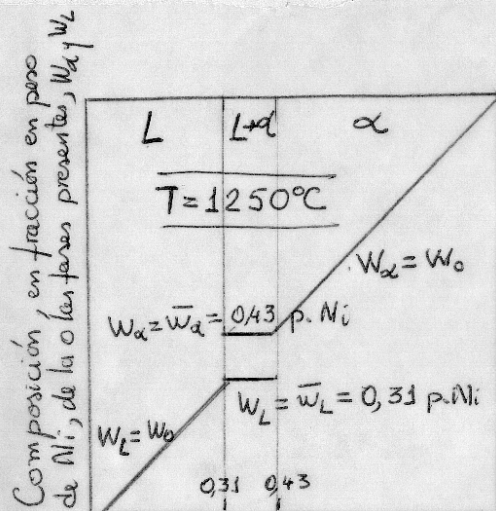 Composición, en fracción en peso
de Ni, de la o las fases presentes, Wα y WL
L
L+α
α
T=1250°C
Wα=Wo
Wα=W̅α=0,43 p.Ni
WL=W̅L=0,31 p.Ni
WL=Wo
0,31
0,43